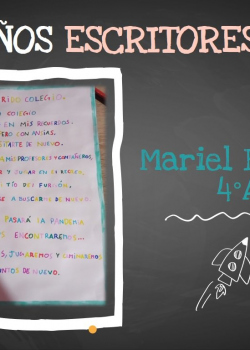 ÑOS ESCRITORES
RIDO COLEGIO.
COLEGIO
EN MIS RECUERDOS.
ERO CON ANSIAS.
SITARTE DE NUEVO.
A MIS PROFESORES Y COMPAÑEROS,
Y JUGAR EN EL RECREO,
TÍO DEL FURGÓN,
E A BUSCARME DE NUEVO.
PASARÁ LA PANDEMIA
ENCONTRAREMOS...
S, JUGAREMOS Y
NTOS DE NUEVO.
Mariel
4°A